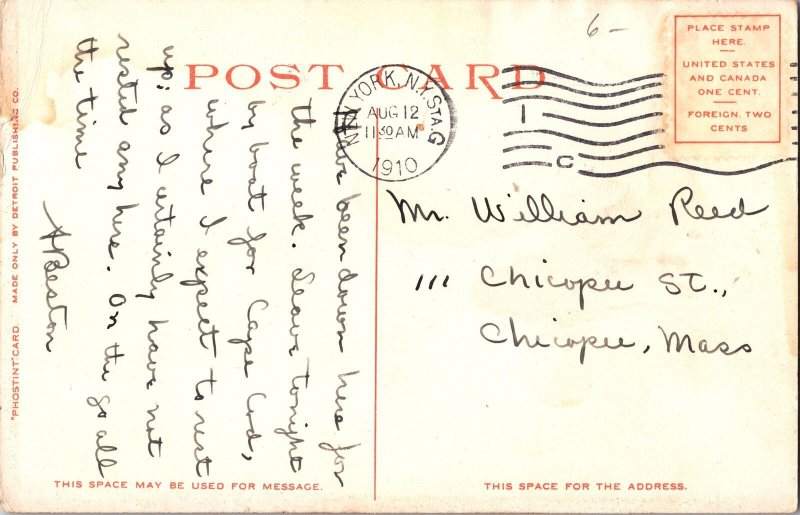 6-
POST CARD
PLACE STAMP
HERE.
UNITED STATES
AND CANADA
ONE CENT.
FOREIGN TWO
CENTS
NEW YORK, N.Y. STA. G
AUG 12
11 30 AM
1910
1
C
Have been down here for
the week. Leave tonight
by boat for Cape Cod,
where I expect to rest
up: as I certainly have not
rested any here. On the go all
the time
A Beston
Mr. William Reed
111 Chicopee St.,
Chicopee, Mass
THIS SPACE MAY BE USED FOR MESSAGE.
THIS SPACE FOR THE ADDRESS.
"PHOSTINT" CARD. MADE ONLY BY DETROIT PUBLISHING CO.